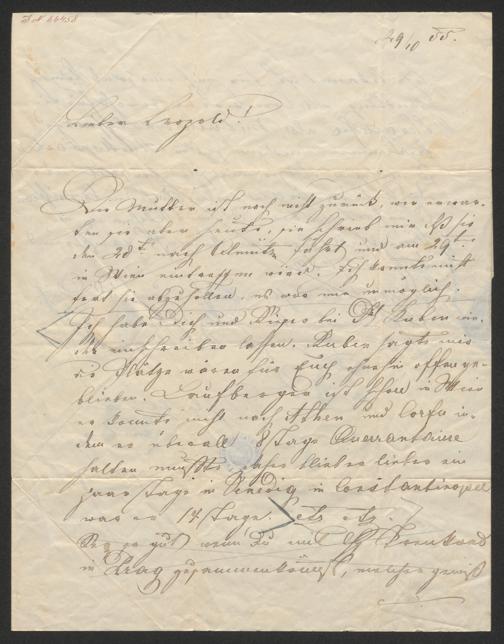 29/10 55.
Lieber Leopold!
Die Mutter ist noch nicht zurück, wir erwar-
ten sie aber heute, sie schrieb mir daß sie
den 28t nach Olmütz fährt und am 29t
in Wien eintreffen wird. Ich konnte nicht
fort sie abzuholen, es war mir unmöglich.
Ich habe Dich und bei Ruben wie-
der einschreiben lassen. Ruben sagte mir
die Plätze wären für Euch ohnehin offen ge-
blieben. Laufberger ist schon in Wien
er konnte nicht nach Athen und Corfu in-
dem er überall 8 Tage Quarantaine
halten mußte, daher blieb er lieber ein
paar Tage in Venedig in Constantinopel
war er 14 Tage. etc etc.
gut wenn Du mit
in Prag zusammenkömmst, welcher gewiß